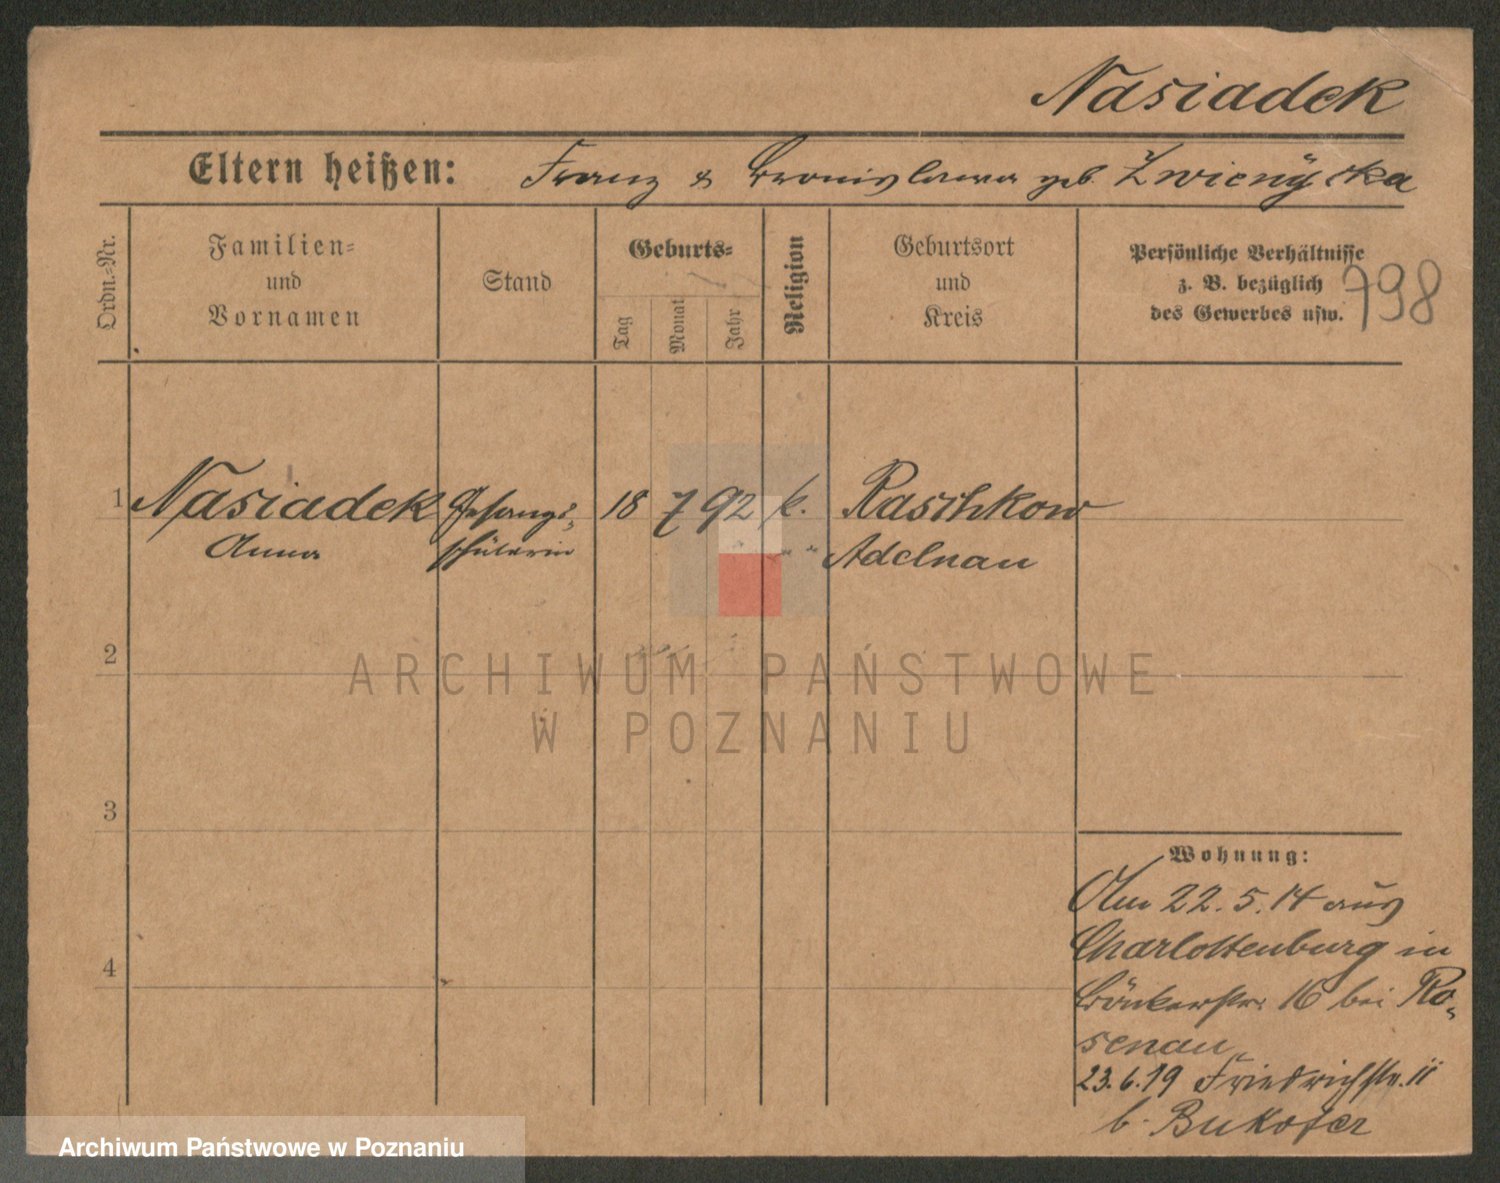 Nasiadek
Eltern heißen: Franz & Bronislawa geb.
Ordn.=Nr.
Familien=
und
Vornamen
Stand
Geburts=
Tag
Monat
Jahr
Religion
Geburtsort
und
Kreis
Persönliche Verhältnisse
z. B. bezüglich
des Gewerbes usw.
798
1 Nasiadek Gesangs= 18 7 92 k. Raschkow
Anna schülerin " " Adelnau
2
3
4
ARCHIWUM PAŃSTWOWE
W POZNANIU
Wohnung:
Am 22. 5. 14 aus
Charlottenburg in
16 bei Ro=
senau
23. 6. 19 Friedrichstr. 11
b. Bukofer
Archiwum Państwowe w Poznaniu